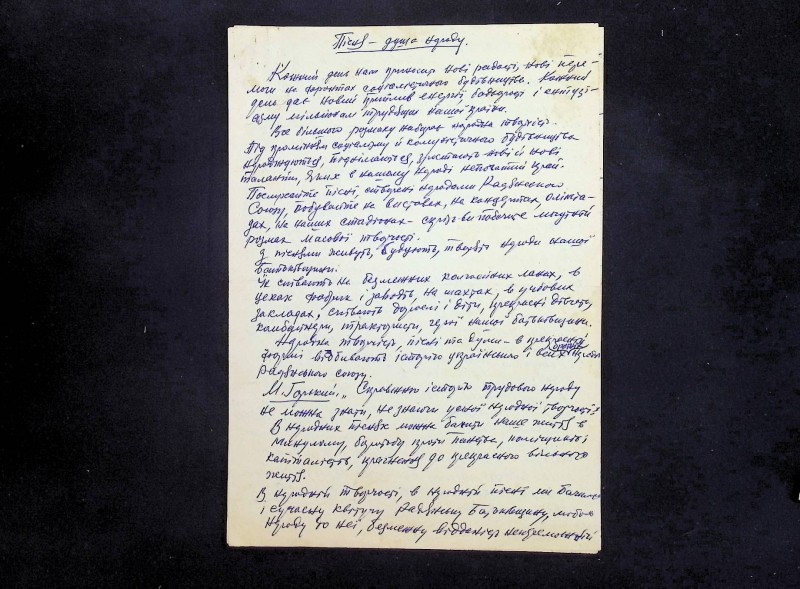 Пісня – душа народу.
Кожний день нам приносить нові радості, нові пере-
моги на фронтах соціалістичного будівництва. Кожний
день дає новий приплив енергії, бадьорості і ентузі-
азму мільйонам трудящих нашої країни.
Все більшого розмаху набирає народна творчість.
Під промінням соціалізму й комуністичного будівництва
народжуються, піднімаються, зростають нові й нові
таланти, яких в нашому народі непочатий край.
Послухайте пісні, створені народами Радянського
Союзу, побувайте на виставах, на концертах, олімпіа-
дах, на наших стадіонах – скрізь ви побачите могутній
розмах масової творчості.
З піснями живуть, будують, творять народи нашої
Батьківщини.
Їх співають на безмежних колгоспних ланах, в
цехах фабрик і заводів, на шахтах, в учбових
закладах, співають дорослі і діти, прекрасні дівчата,
комбайнери, трактористи, герої нашої батьківщини.
Народна творчість, пісні та думи – в прекрасній
формі відбивають історію українського і всіх народів
Радянського союзу.
М. Горький: „Справжню історію трудового народу
не можна знати, не знаючи усної народної творчості"
В народних піснях можна бачити наше життя в
минулому, боротьбу проти панства, поміщиків і
капіталістів, прагнення до прекрасного вільного
життя.
В народній творчості, в народній пісні ми бачимо
і сучасну квітучу Радянську Батьківщину, любов
народу до неї, безмежну відданість